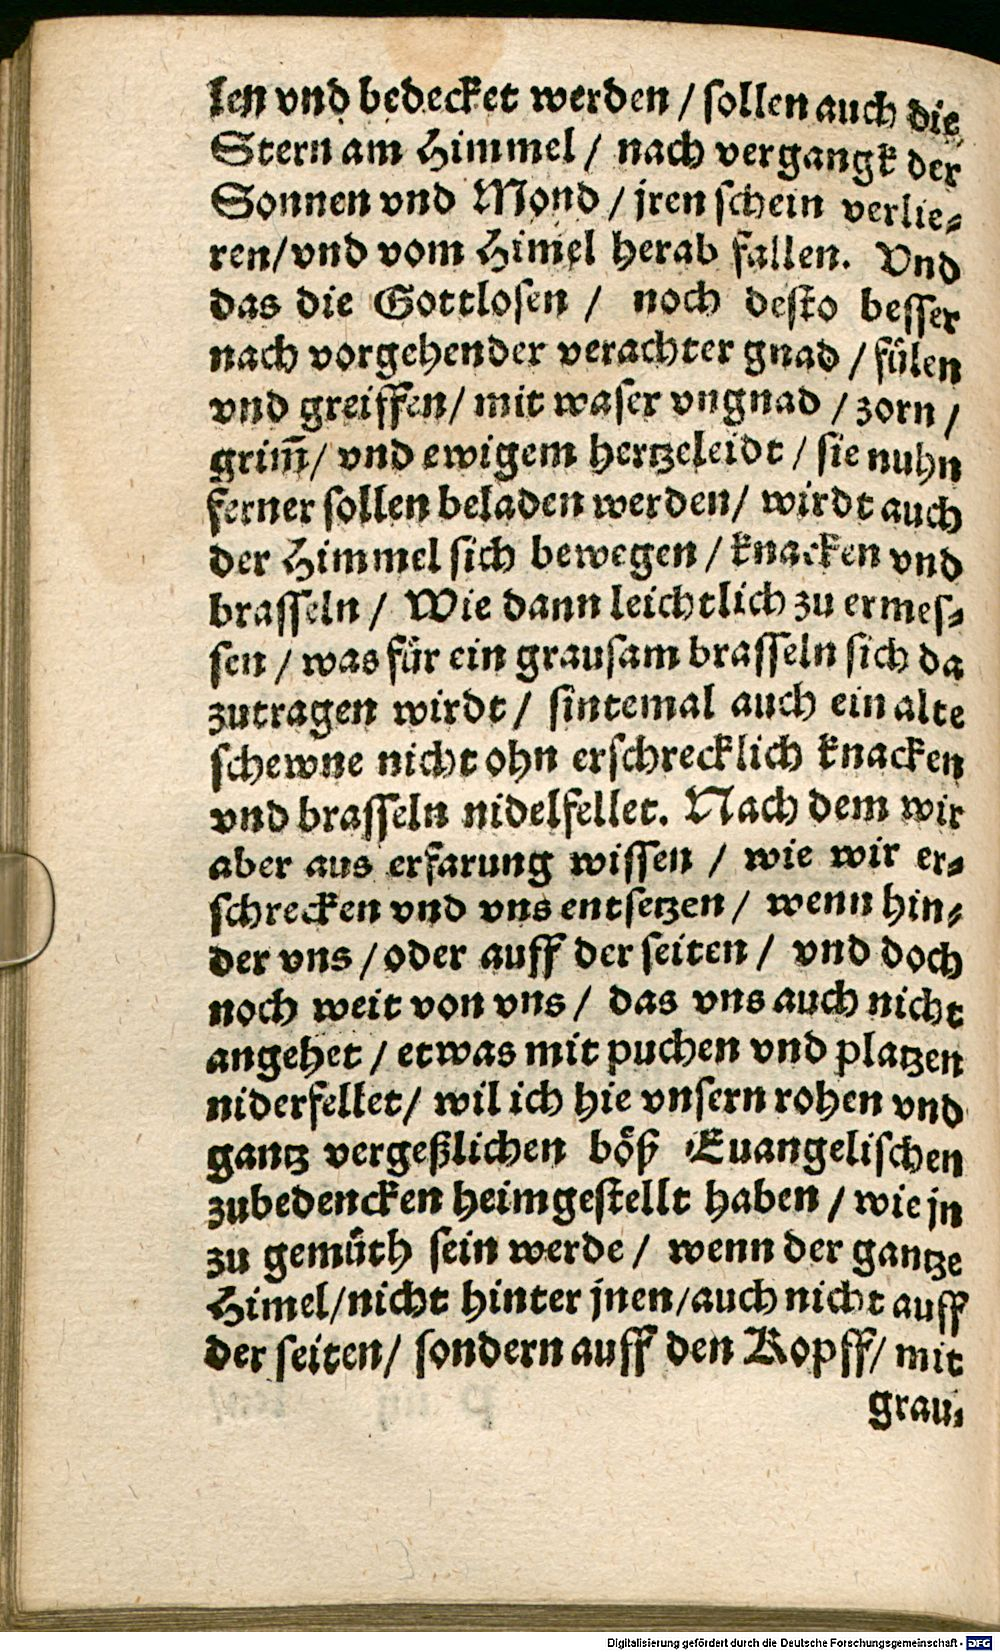 len vnd bedecket werden / sollen auch die
Stern am Himmel / nach vergangk der
Sonnen vnd Mond / jren schein verlie-
ren / vnd vom Himel herab fallen. Vnd
das die Gottlosen / noch desto besser
nach vorgehender verachter gnad / fülen
vnd greiffen / mit waser vngnad / zorn /
grim̃ / vnd ewigem hertzeleidt / sie nuhn
ferner sollen beladen werden / wirdt auch
der Himmel sich bewegen / knacken vnd
brasseln / Wie dann leichtlich zu ermes-
sen / was für ein grausam brasseln sich da
zutragen wirdt / sintemal auch ein alte
schewne nicht ohn erschrecklich knacken
vnd brasseln nidelfellet. Nach dem wir
aber aus erfarung wissen / wie wir er-
schrecken vnd vns entsetzen / wenn hin-
der vns / oder auff der seiten / vnd doch
noch weit von vns / das vns auch nicht
angehet / etwas mit puchen vnd platzen
niderfellet / wil ich hie vnsern rohen vnd
gantz vergeßlichen böß Euangelischen
zubedencken heimgestellt haben / wie jn
zu gemüth sein werde / wenn der gantze
Himel / nicht hinter jnen / auch nicht auff
der seiten / sondern auff den Kopff / mit
grau-
Digitalisierung gefördert durch die Deutsche Forschungsgemeinschaft - DFG